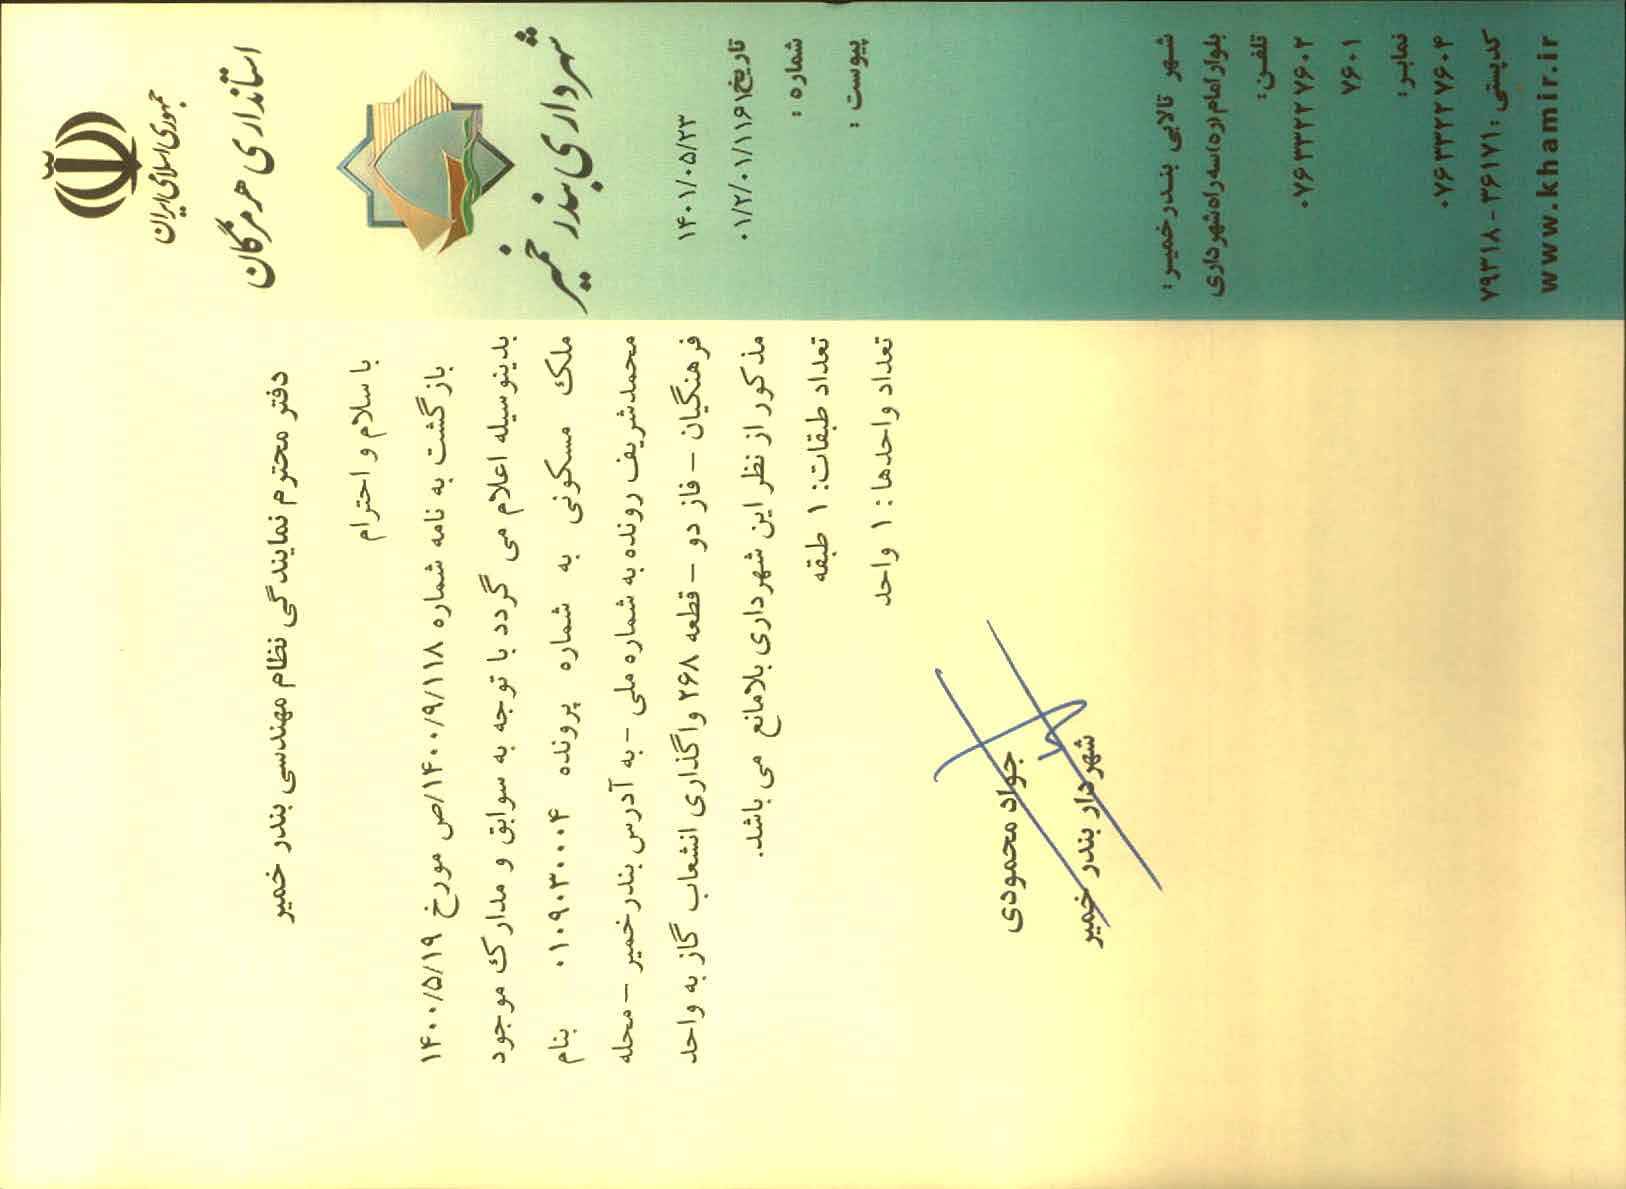 جمهوری اسلامی ایران
استانداری هرمزگان
شهرداری بندر خمیر
۱۴۰۱/۰۵/۲۳
تاریخ
۰۱/۲/۰۱/۱۱۶۱
شماره :
پیوست :
دفتر محترم نمایندگی نظام مهندسی بندر خمیر
با سلام و احترام
بازگشت به نامه شماره ۱۴۰۰/۹/۱۱۸/ص مورخ ۱۴۰۰/۵/۱۹
بدینوسیله اعلام می گردد با توجه به سوابق و مدارک موجود
ملک مسکونی به شماره پرونده ۰۱۰۹۰۳۰۰۰۴ بنام
محمدشریف رونده به شماره ملی - به آدرس بندرخمیر – محله
فرهنگیان – فاز دو – قطعه ۲۶۸ واگذاری انشعاب گاز به واحد
مذکور از نظر این شهرداری بلامانع می باشد.
تعداد طبقات: ۱ طبقه
تعداد واحدها : ۱ واحد
جواد محمودی
شهردار بندر خمیر
شهر تالابی بندرخمیر :
بلوار امام (ره) سه راه شهرداری
تلفن :
۰۷۶۳۳۲۲۷۶۰۲
۷۶۰۱
نمابر :
۰۷۶۳۳۲۲۷۶۰۴
کدپستی : ۳۶۱۷۱ - ۷۹۳۱۸
www.khamir.ir